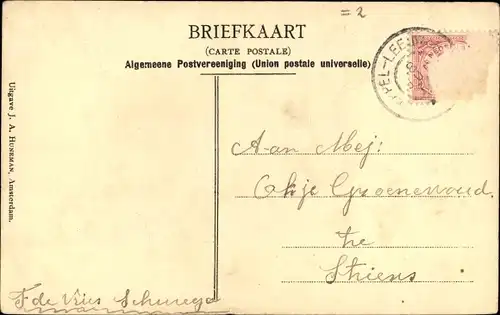 = 2
BRIEFKAART
(CARTE POSTALE)
Algemeene Postvereeniging (Union postale universelle)
PEL-LEEUW
Uitgave J. A. HUNEMAN, Amsterdam.
Aan Mej:
Okje Groenewoud.
te
Stiens
F de Vries Schurega